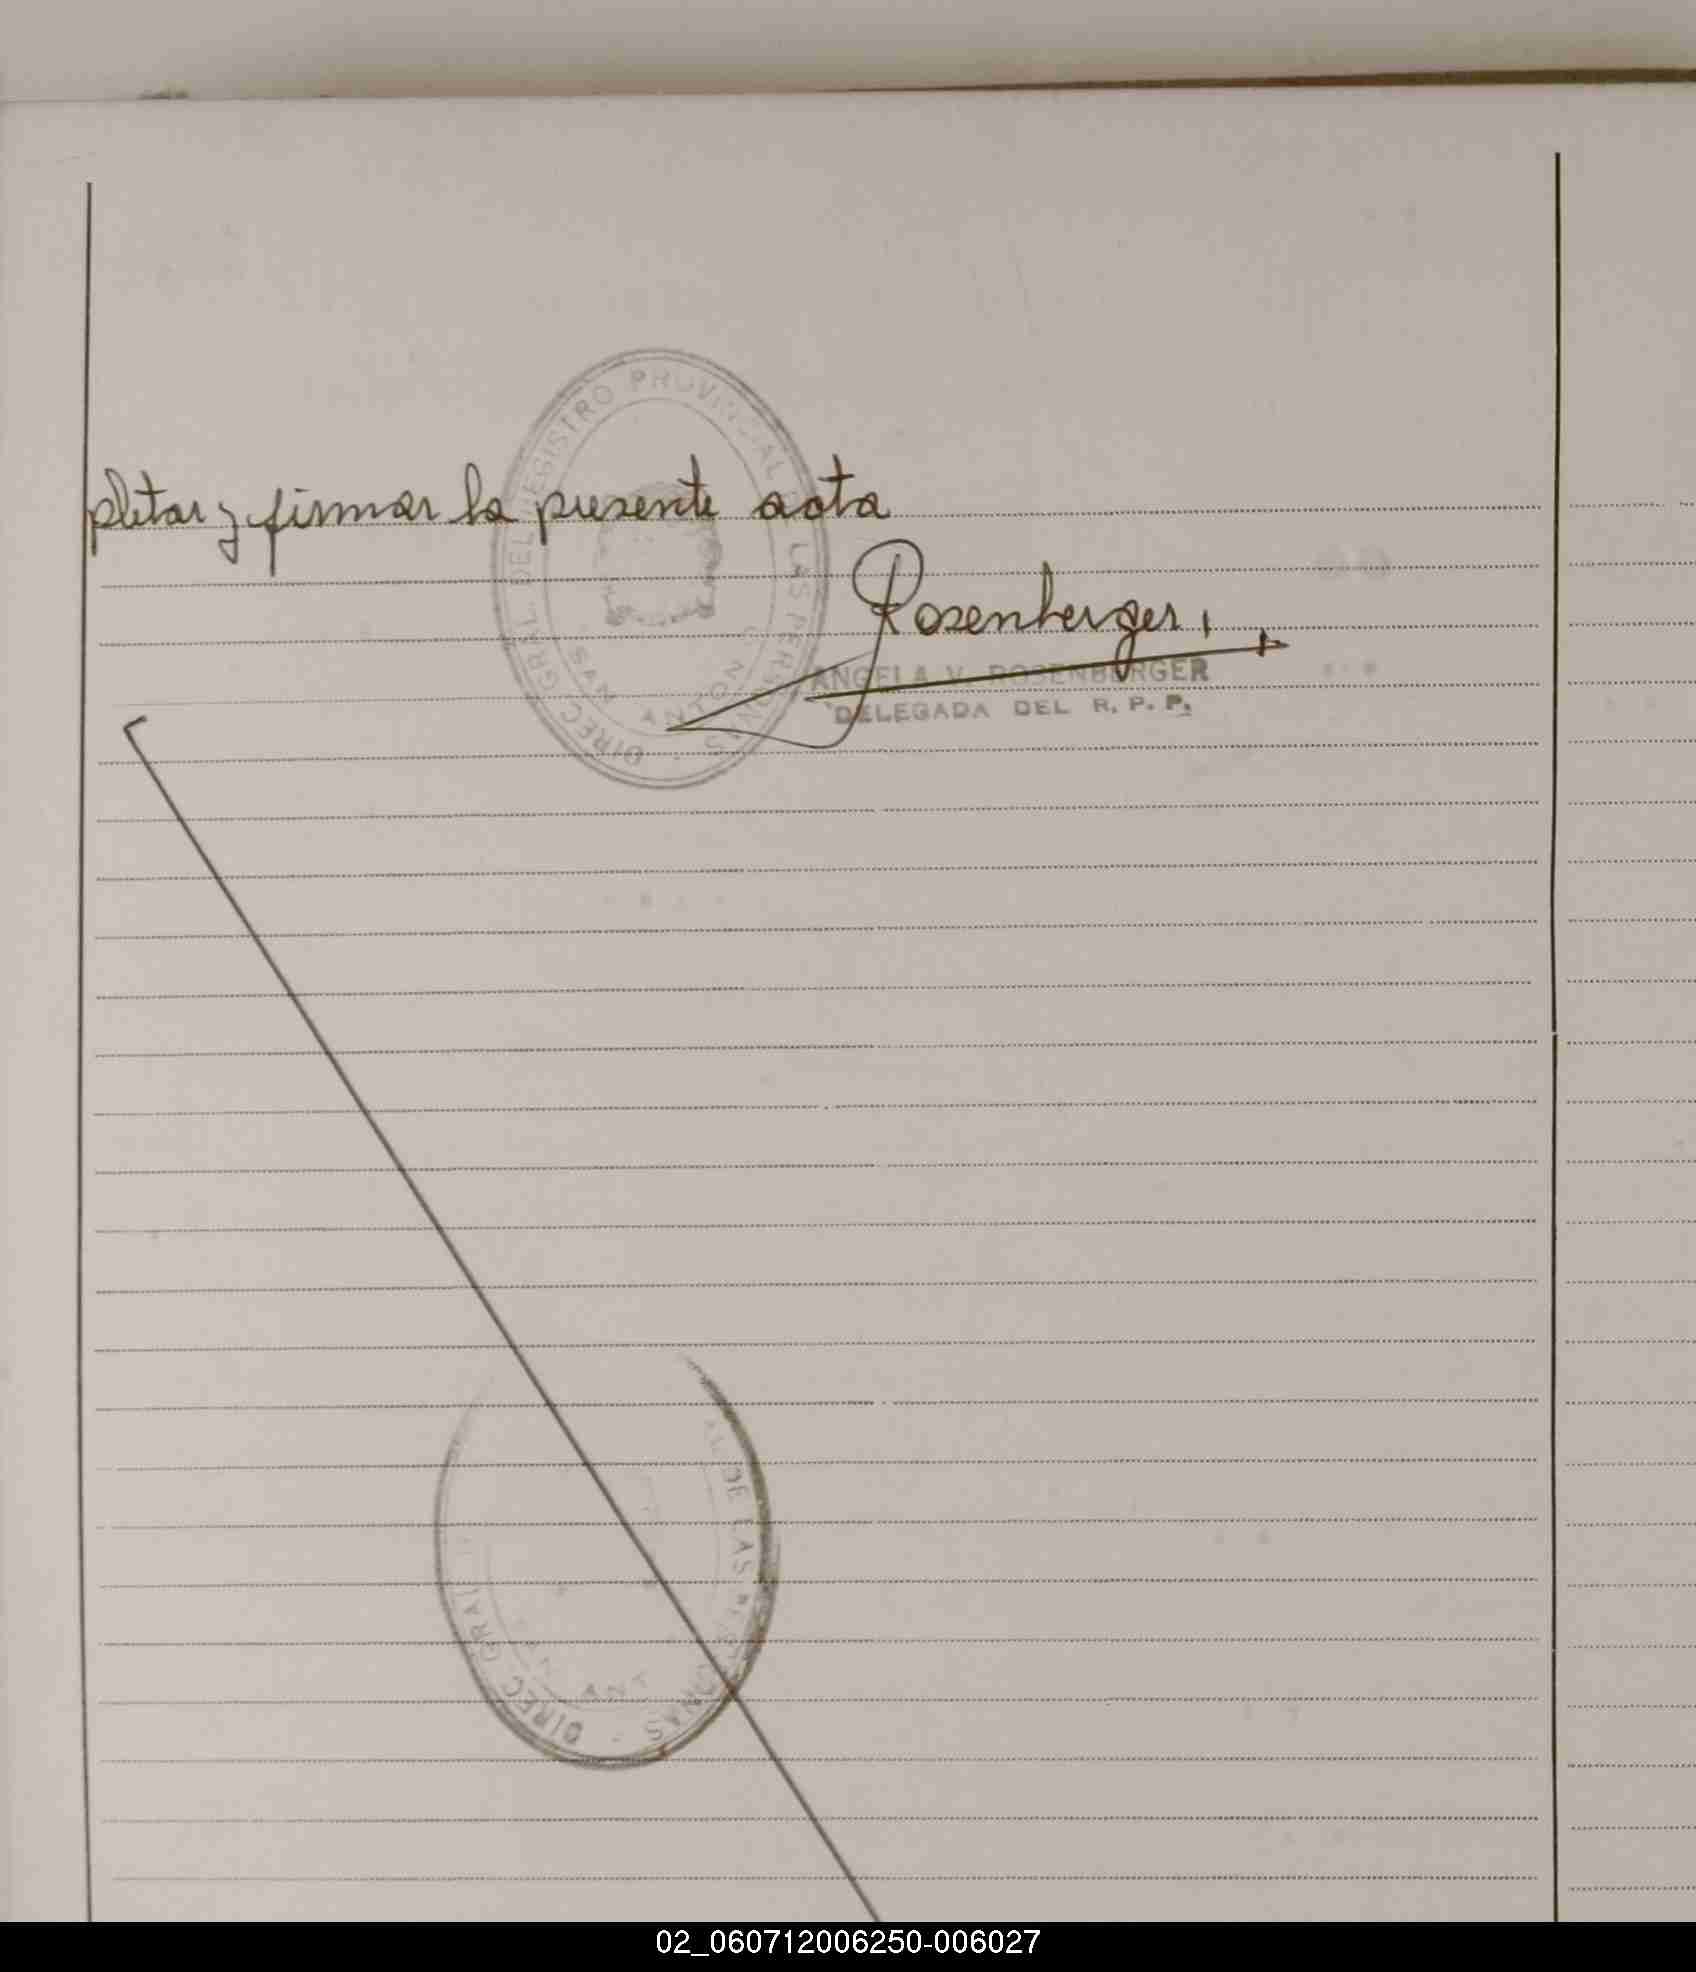 pletar y firmar la presente acta
Rosenberger
ANGELA V. ROSENBERGER
DELEGADA DEL R. P. P.
DIREC. GRAL. DEL REGISTRO PROVINCIAL DE LAS PERSONAS
DIREC GRAL
AL DE LAS PERSONAS
02_060712006250-006027